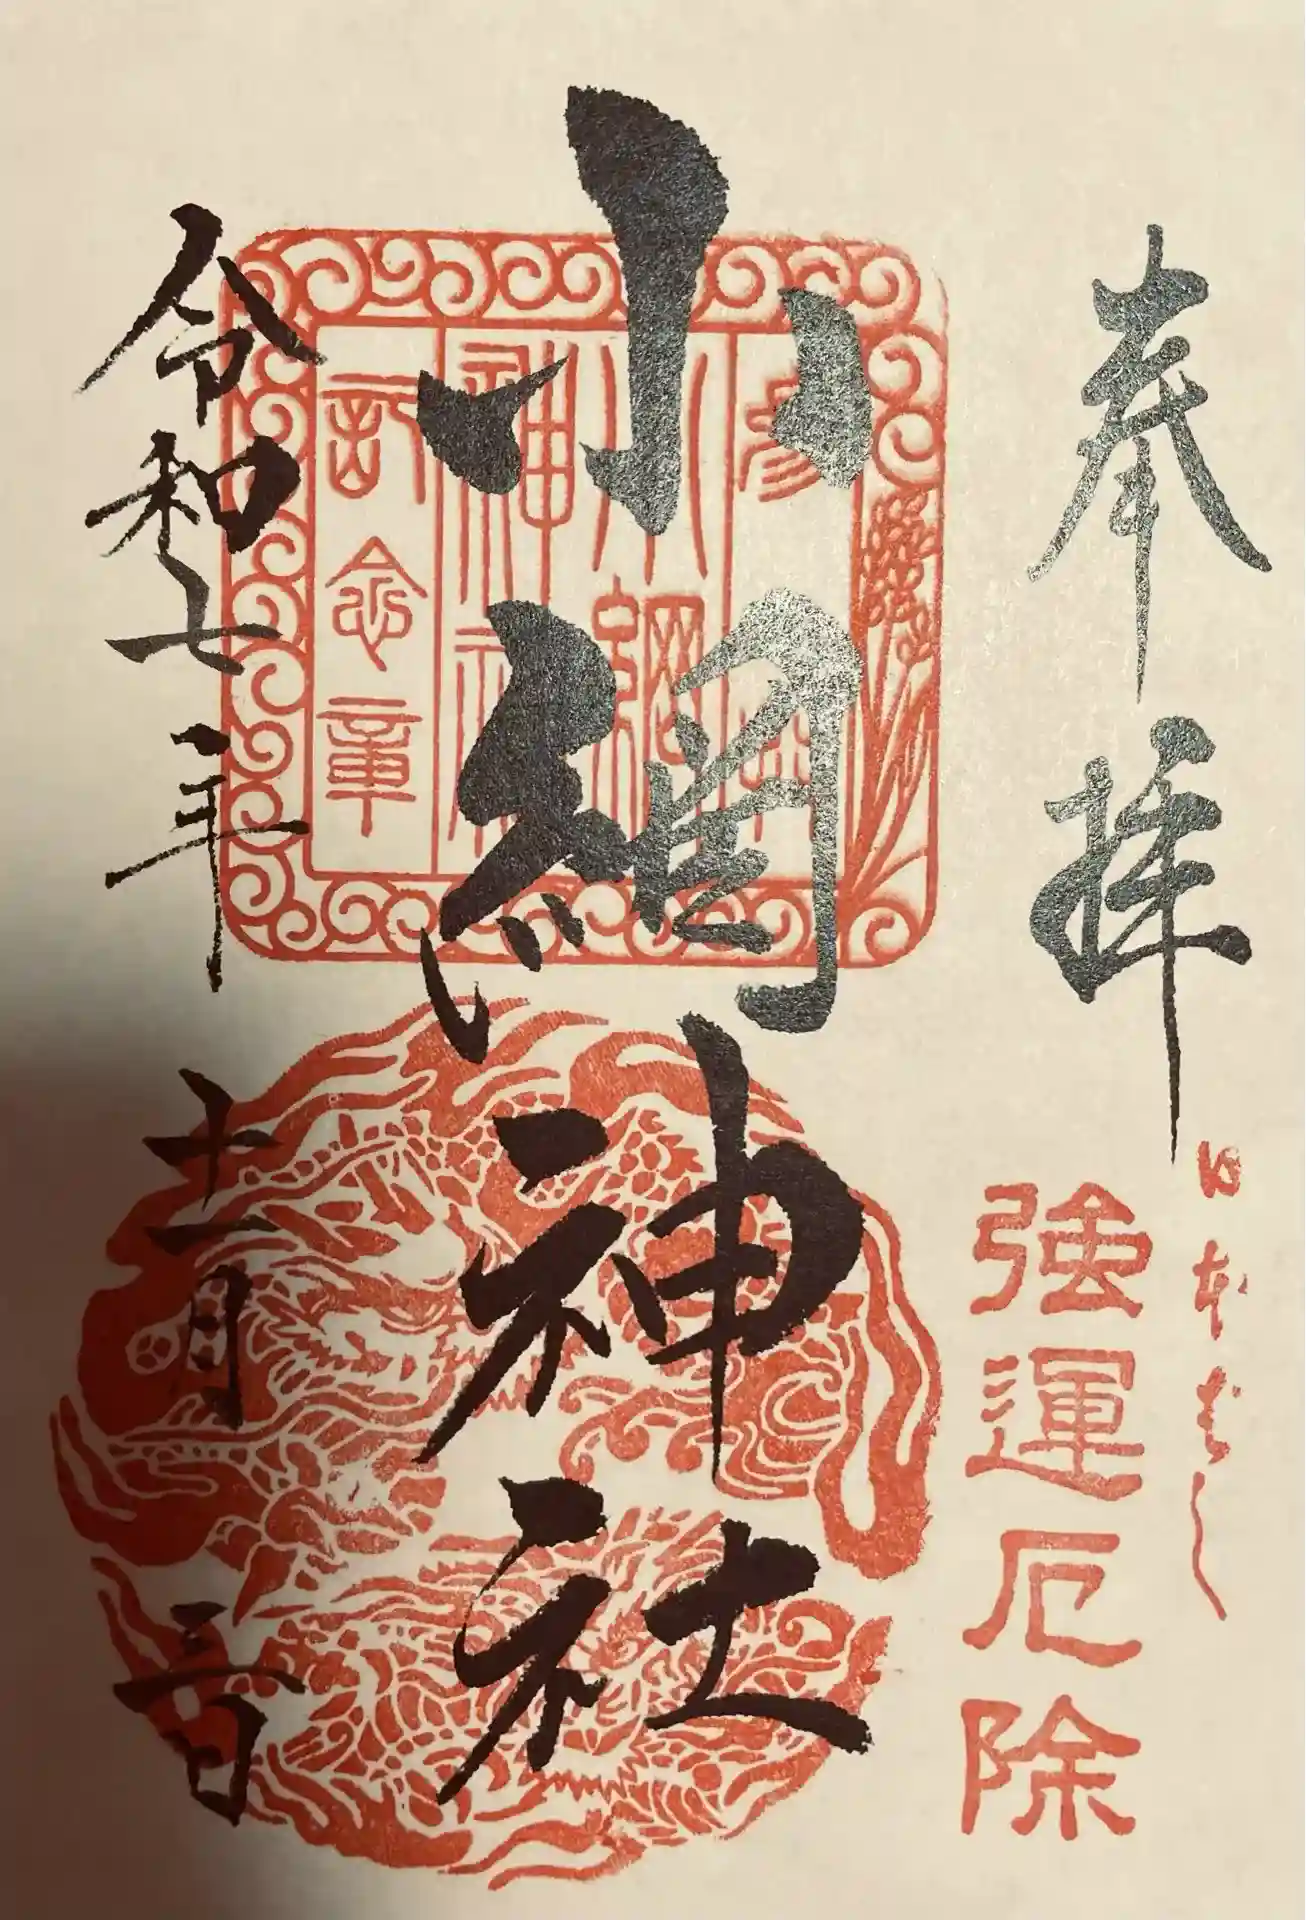 奉拝
日本はし
強運厄除
小網神社
参拝
小網
神社
記念章
令和七年十一月三日